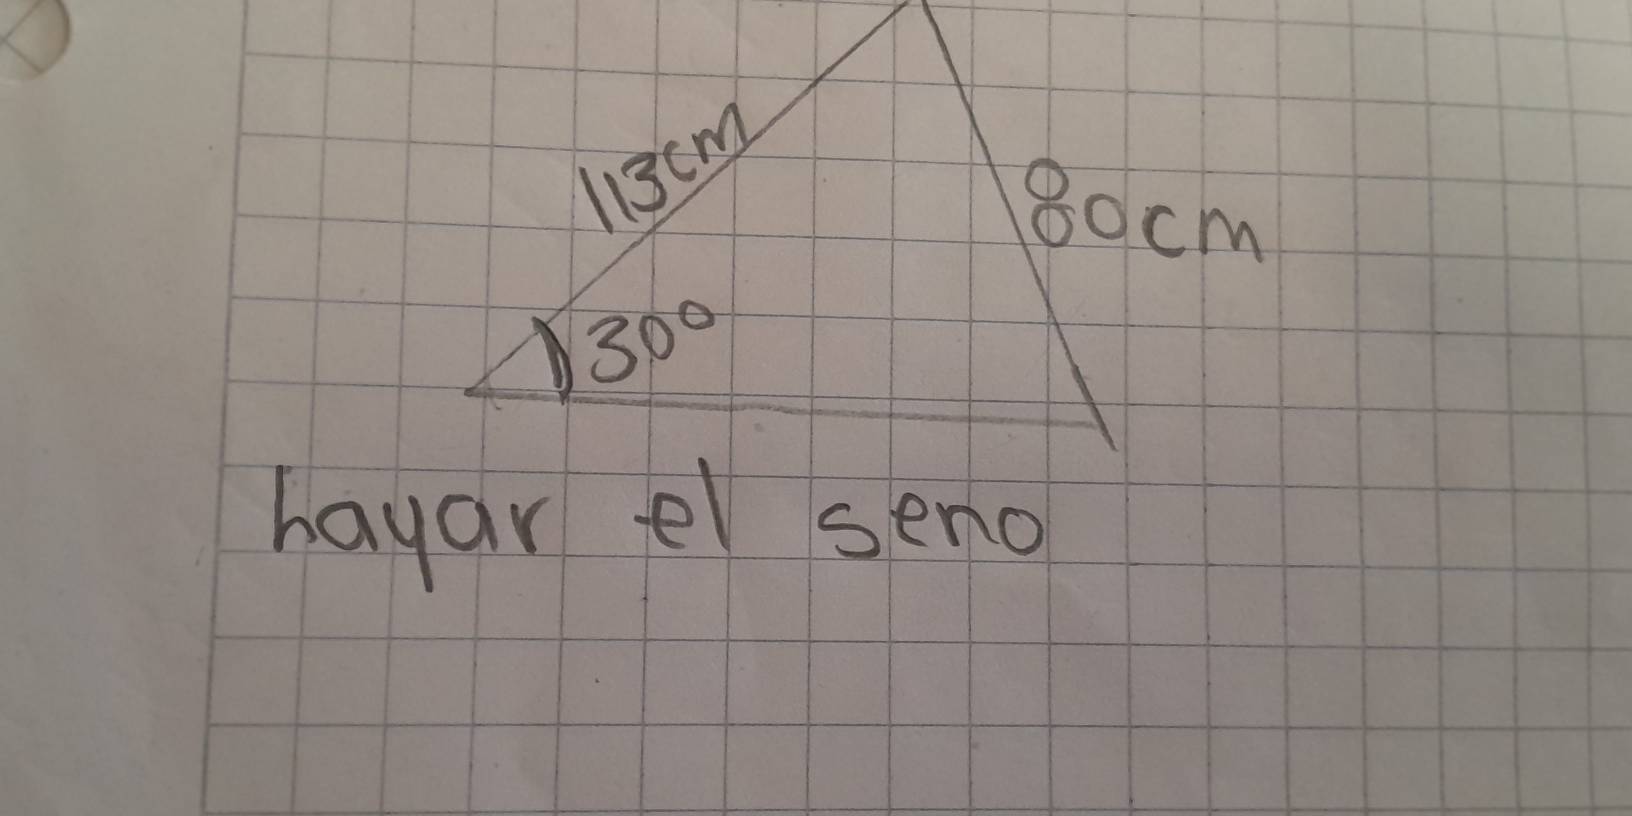 113cm
80cm
30°
hayar el seno